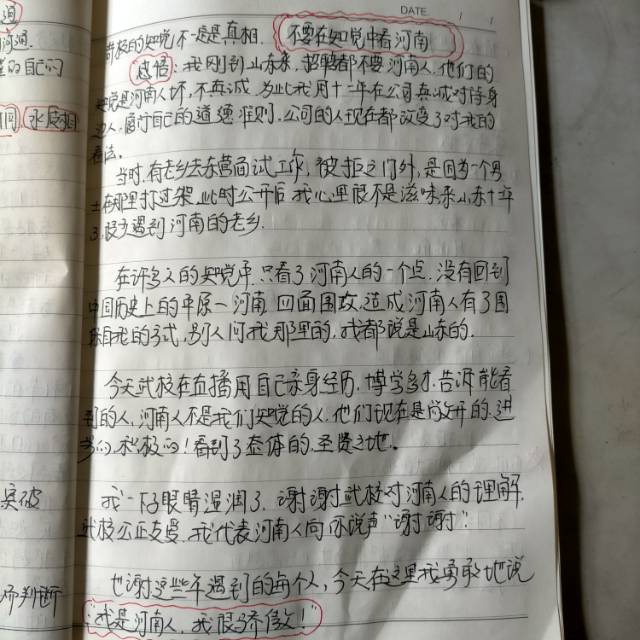 DATE / /
我校的知觉不一定是真相. 不要在知觉中看河南
感悟: 我刚到山东来, 招聘都不要河南人, 他们的
知觉是河南人坏, 不真诚, 为此我用十二年在公司真诚对待身
边人, 履行自己的道德准则, 公司的人现在都改变了对我的
看法。
当时, 有老乡去东营面试工作, 被拒之门外, 是因为一个男
士在那里打过架, 此时公开后, 我心里很不是滋味来山东十年
了, 很少遇到河南的老乡.
在许多人的知觉中, 只看了河南人的一个点, 没有回到
中国历史上的平原一河南, 四面围攻, 造成河南人有了围
自我的方式, 别人问我那里的, 我都说是山东的.
今天武校在直播用自己亲身经历, 博学多才, 告诉能看
到的人, 河南人不是我们知觉的人, 他们现在是尚开的, 进
步的, 积极的! 看到了整体的, 圣贤之地。
我一下眼睛湿润了, 谢谢武校对河南人的理解
武校公正支是, 我代表河南人向你说声“谢谢”.
也谢这些年遇到的每个人, 今天在这里我勇敢地说
“我是河南人, 我很骄傲!”
自己的
水
突破
判断